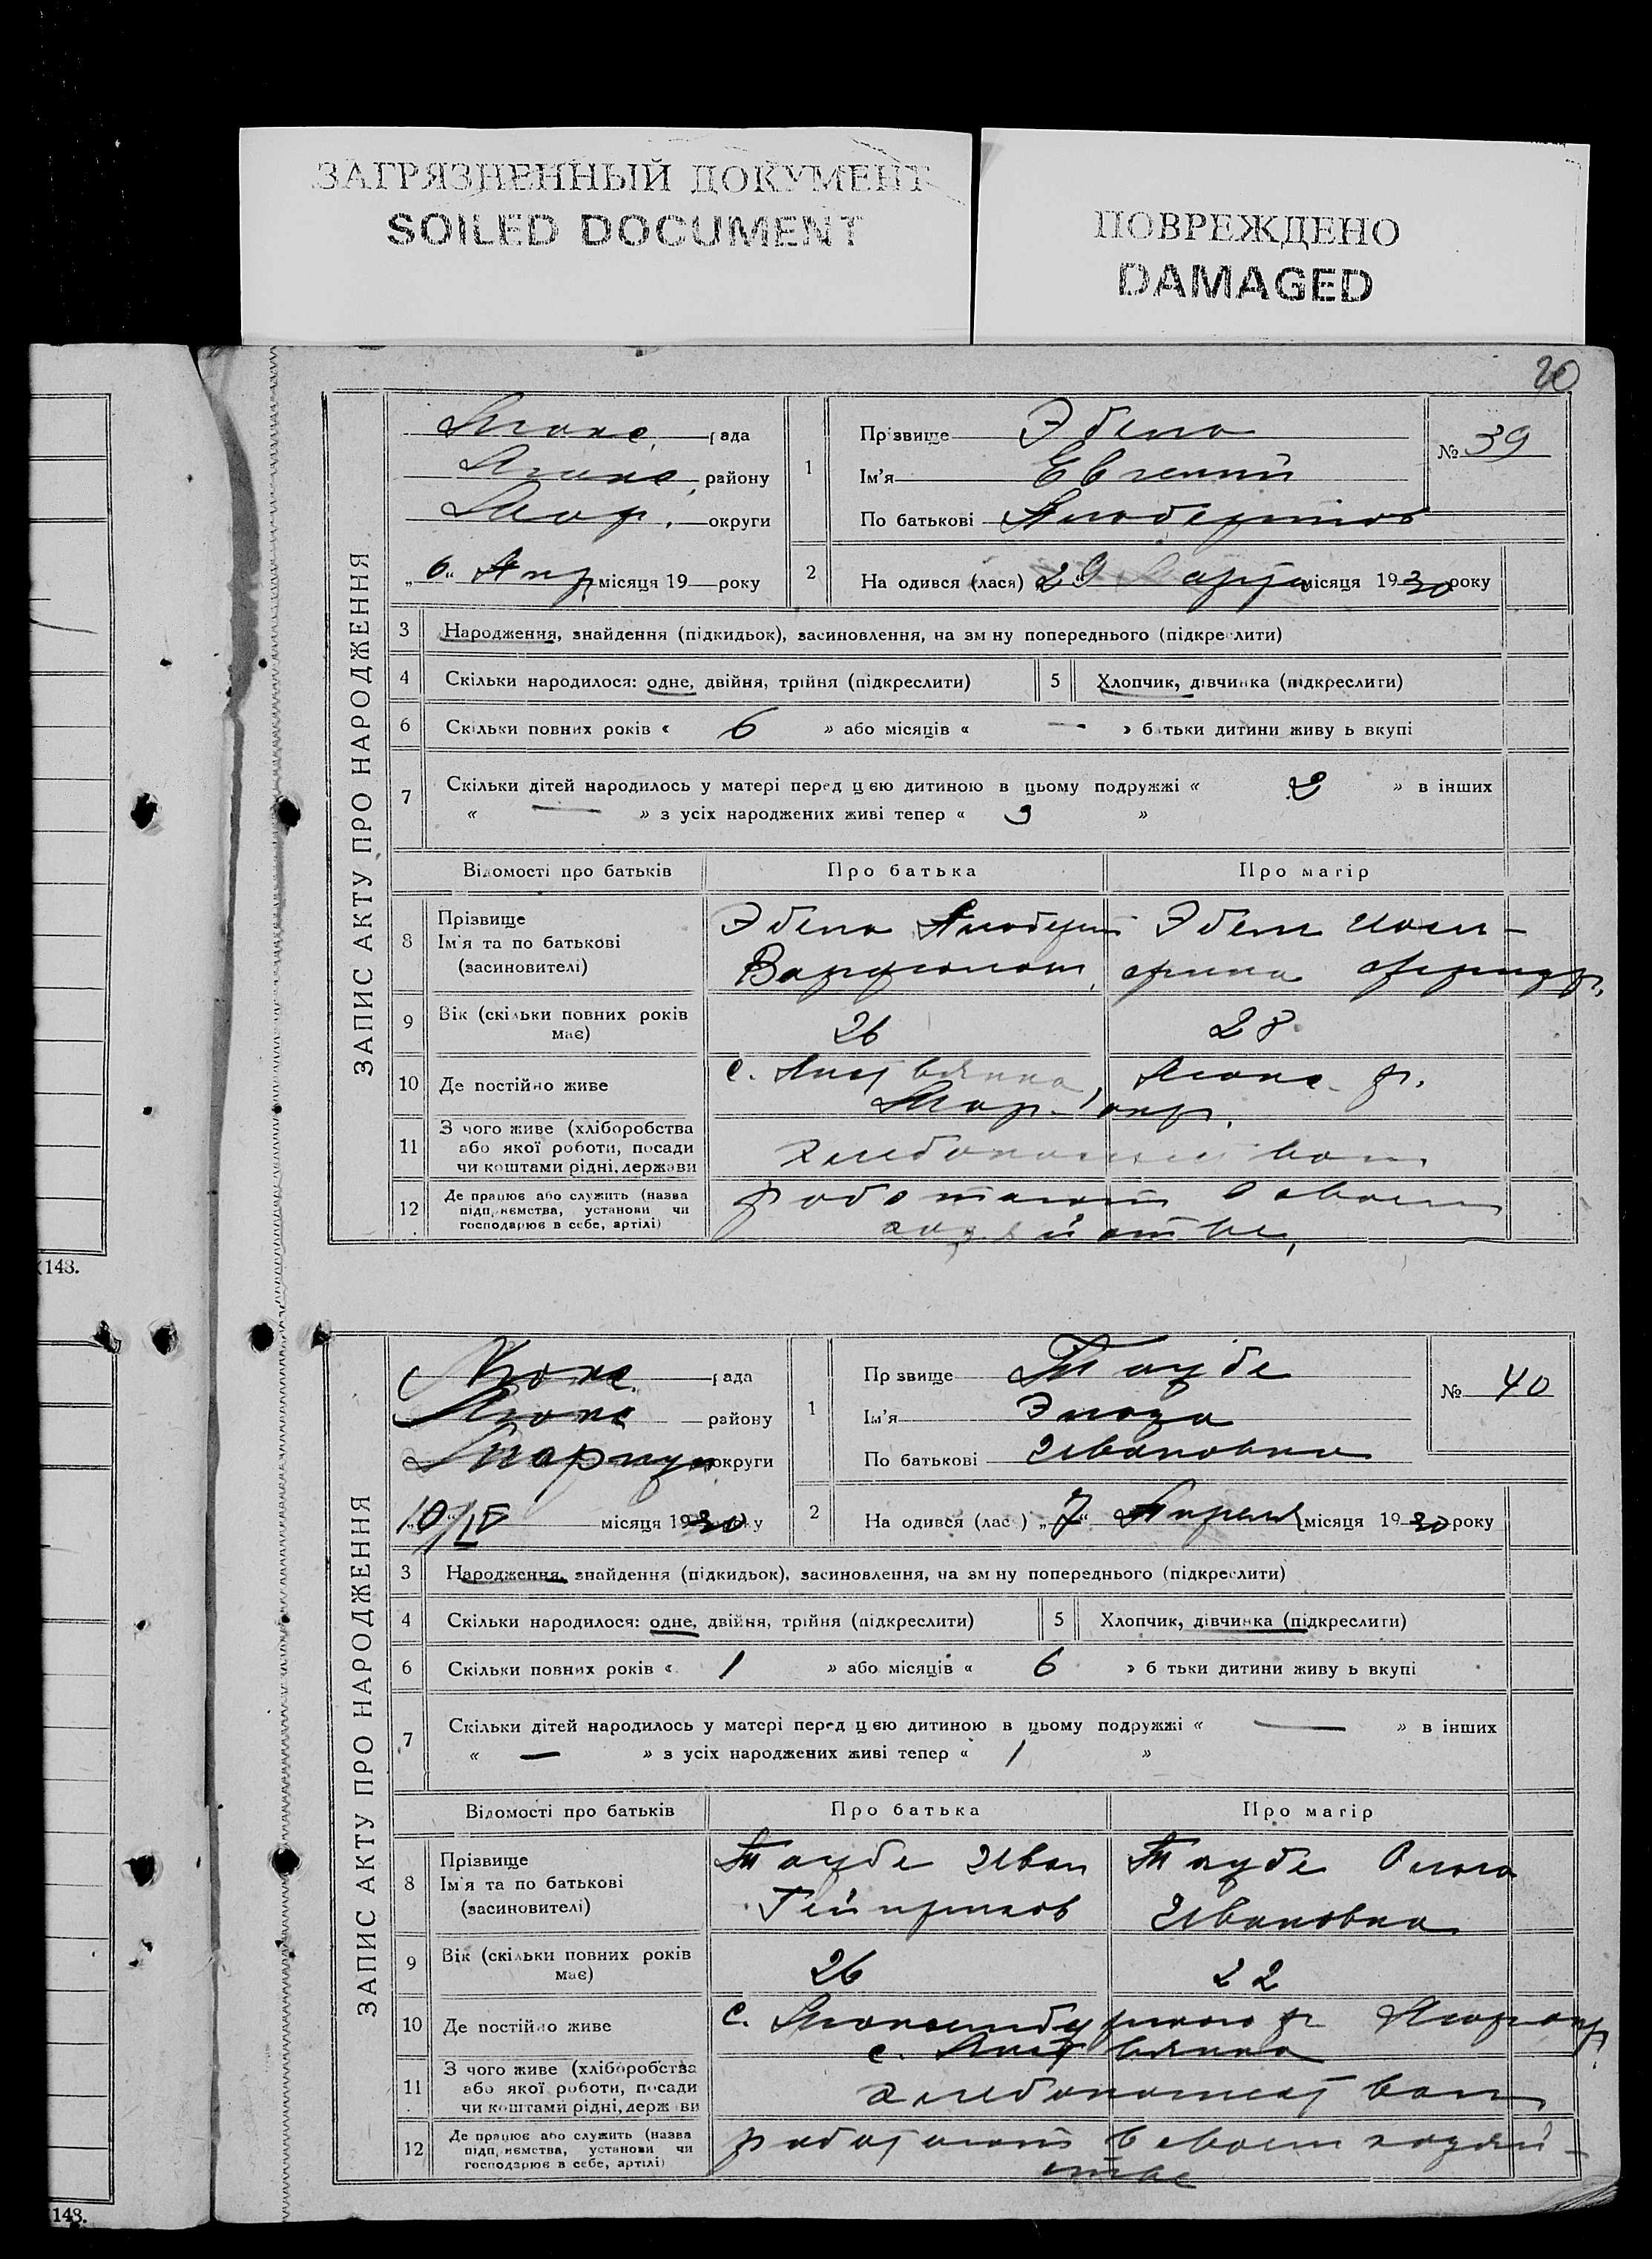 ЗАГРЯЗНЕННЫЙ ДОКУМЕНТ
SOILED DOCUMENT
ПОВРЕЖДЕНО
DAMAGED
20
ЗАПИС АКТУ ПРО НАРОДЖЕННЯ
Люкс. рада
Люкс. району
Мар. округи
„6“ Апр. місяця 19 року
1
Прізвище
Ім'я Евгений
По батькові
№ 39
2 На одився (лася) „29“ Марта місяця 1930 року
3 Народження, знайдення (підкидьок), засиновлення, на зм ну попереднього (підкреслити)
4 Скільки народилося: одне, двійня, трійня (підкреслити) 5 Хлопчик, дівчинка (підкреслити)
6 Скільки повних років « 6 » або місяців « — » б тьки дитини живу ь вкупі
7 Скільки дітей народилось у матері перед цією дитиною в цьому подружжі « 2 » в інших
« — » з усіх народжених живі тепер « 3 »
Відомості про батьків Про батька Про матір
8 Прізвище
Ім'я та по батькові
(засиновителі)
9 Вік (скільки повних років має) 26 28
10 Де постійно живе с. Листвянка, Люкс. р.
Мар. окр.
11 З чого живе (хліборобства
або якої роботи, посади
чи коштами рідні, держави хлебопашеством
12 Де працює або служить (назва
підприємства, установи чи
господарює в себе, артілі) работают в своем
хозяйстве,
143.
ЗАПИС АКТУ ПРО НАРОДЖЕННЯ
Люкс. рада
Люкс. району
Мариуп. округи
10/IV місяця 1930 року
1
Пр звище Таубе
Ім'я
По батькові Ивановна
№ 40
2 На одився (лас ) „7“ Апреля місяця 1930 року
3 Народження, знайдення (підкидьок), засиновлення, на зм ну попереднього (підкреслити)
4 Скільки народилося: одне, двійня, трійня (підкреслити) 5 Хлопчик, дівчинка (підкреслити)
6 Скільки повних років « 1 » або місяців « 6 » б тьки дитини живу ь вкупі
7 Скільки дітей народилось у матері перед цією дитиною в цьому подружжі « — » в інших
« — » з усіх народжених живі тепер « 1 »
Відомості про батьків Про батька Про матір
8 Прізвище
Ім'я та по батькові
(засиновителі)
Таубе Иван Таубе Ольга
Гейнрихов Ивановна
9 Вік (скільки повних років має) 26 22
10 Де постійно живе с. Люксембургского р. Мар. окр.
с. Листвянка
11 З чого живе (хліборобства
або якої роботи, посади
чи коштами рідні, держ ви хлебопашеством
12 Де працює або служить (назва
підприємства, установи чи
господарює в себе, артілі) работают в своем хозяй-
стве
143.